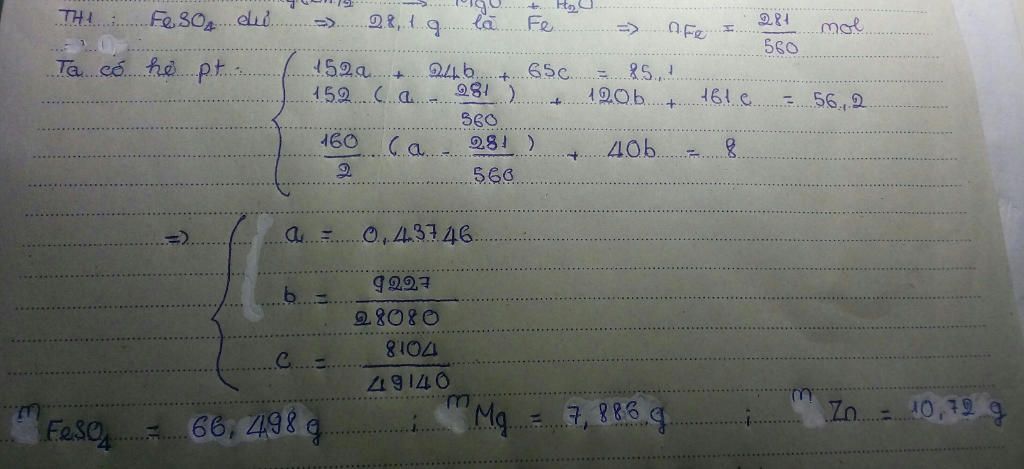 => MgO + H2O
TH1 : FeSO4 dư => 28,1 g là Fe => nFe = 281/560 mol
Ta có hệ pt :
152a + 24b + 65c = 85,1
152 (a - 281/560) + 120b + 161c = 56,2
160/2 (a - 281/560) + 40b = 8
=> a = 0,43746
b = 9227/28080
c = 8104/49140
mFeSO4 = 66,498 g ; mMg = 7,886 g ; mZn = 10,72 g